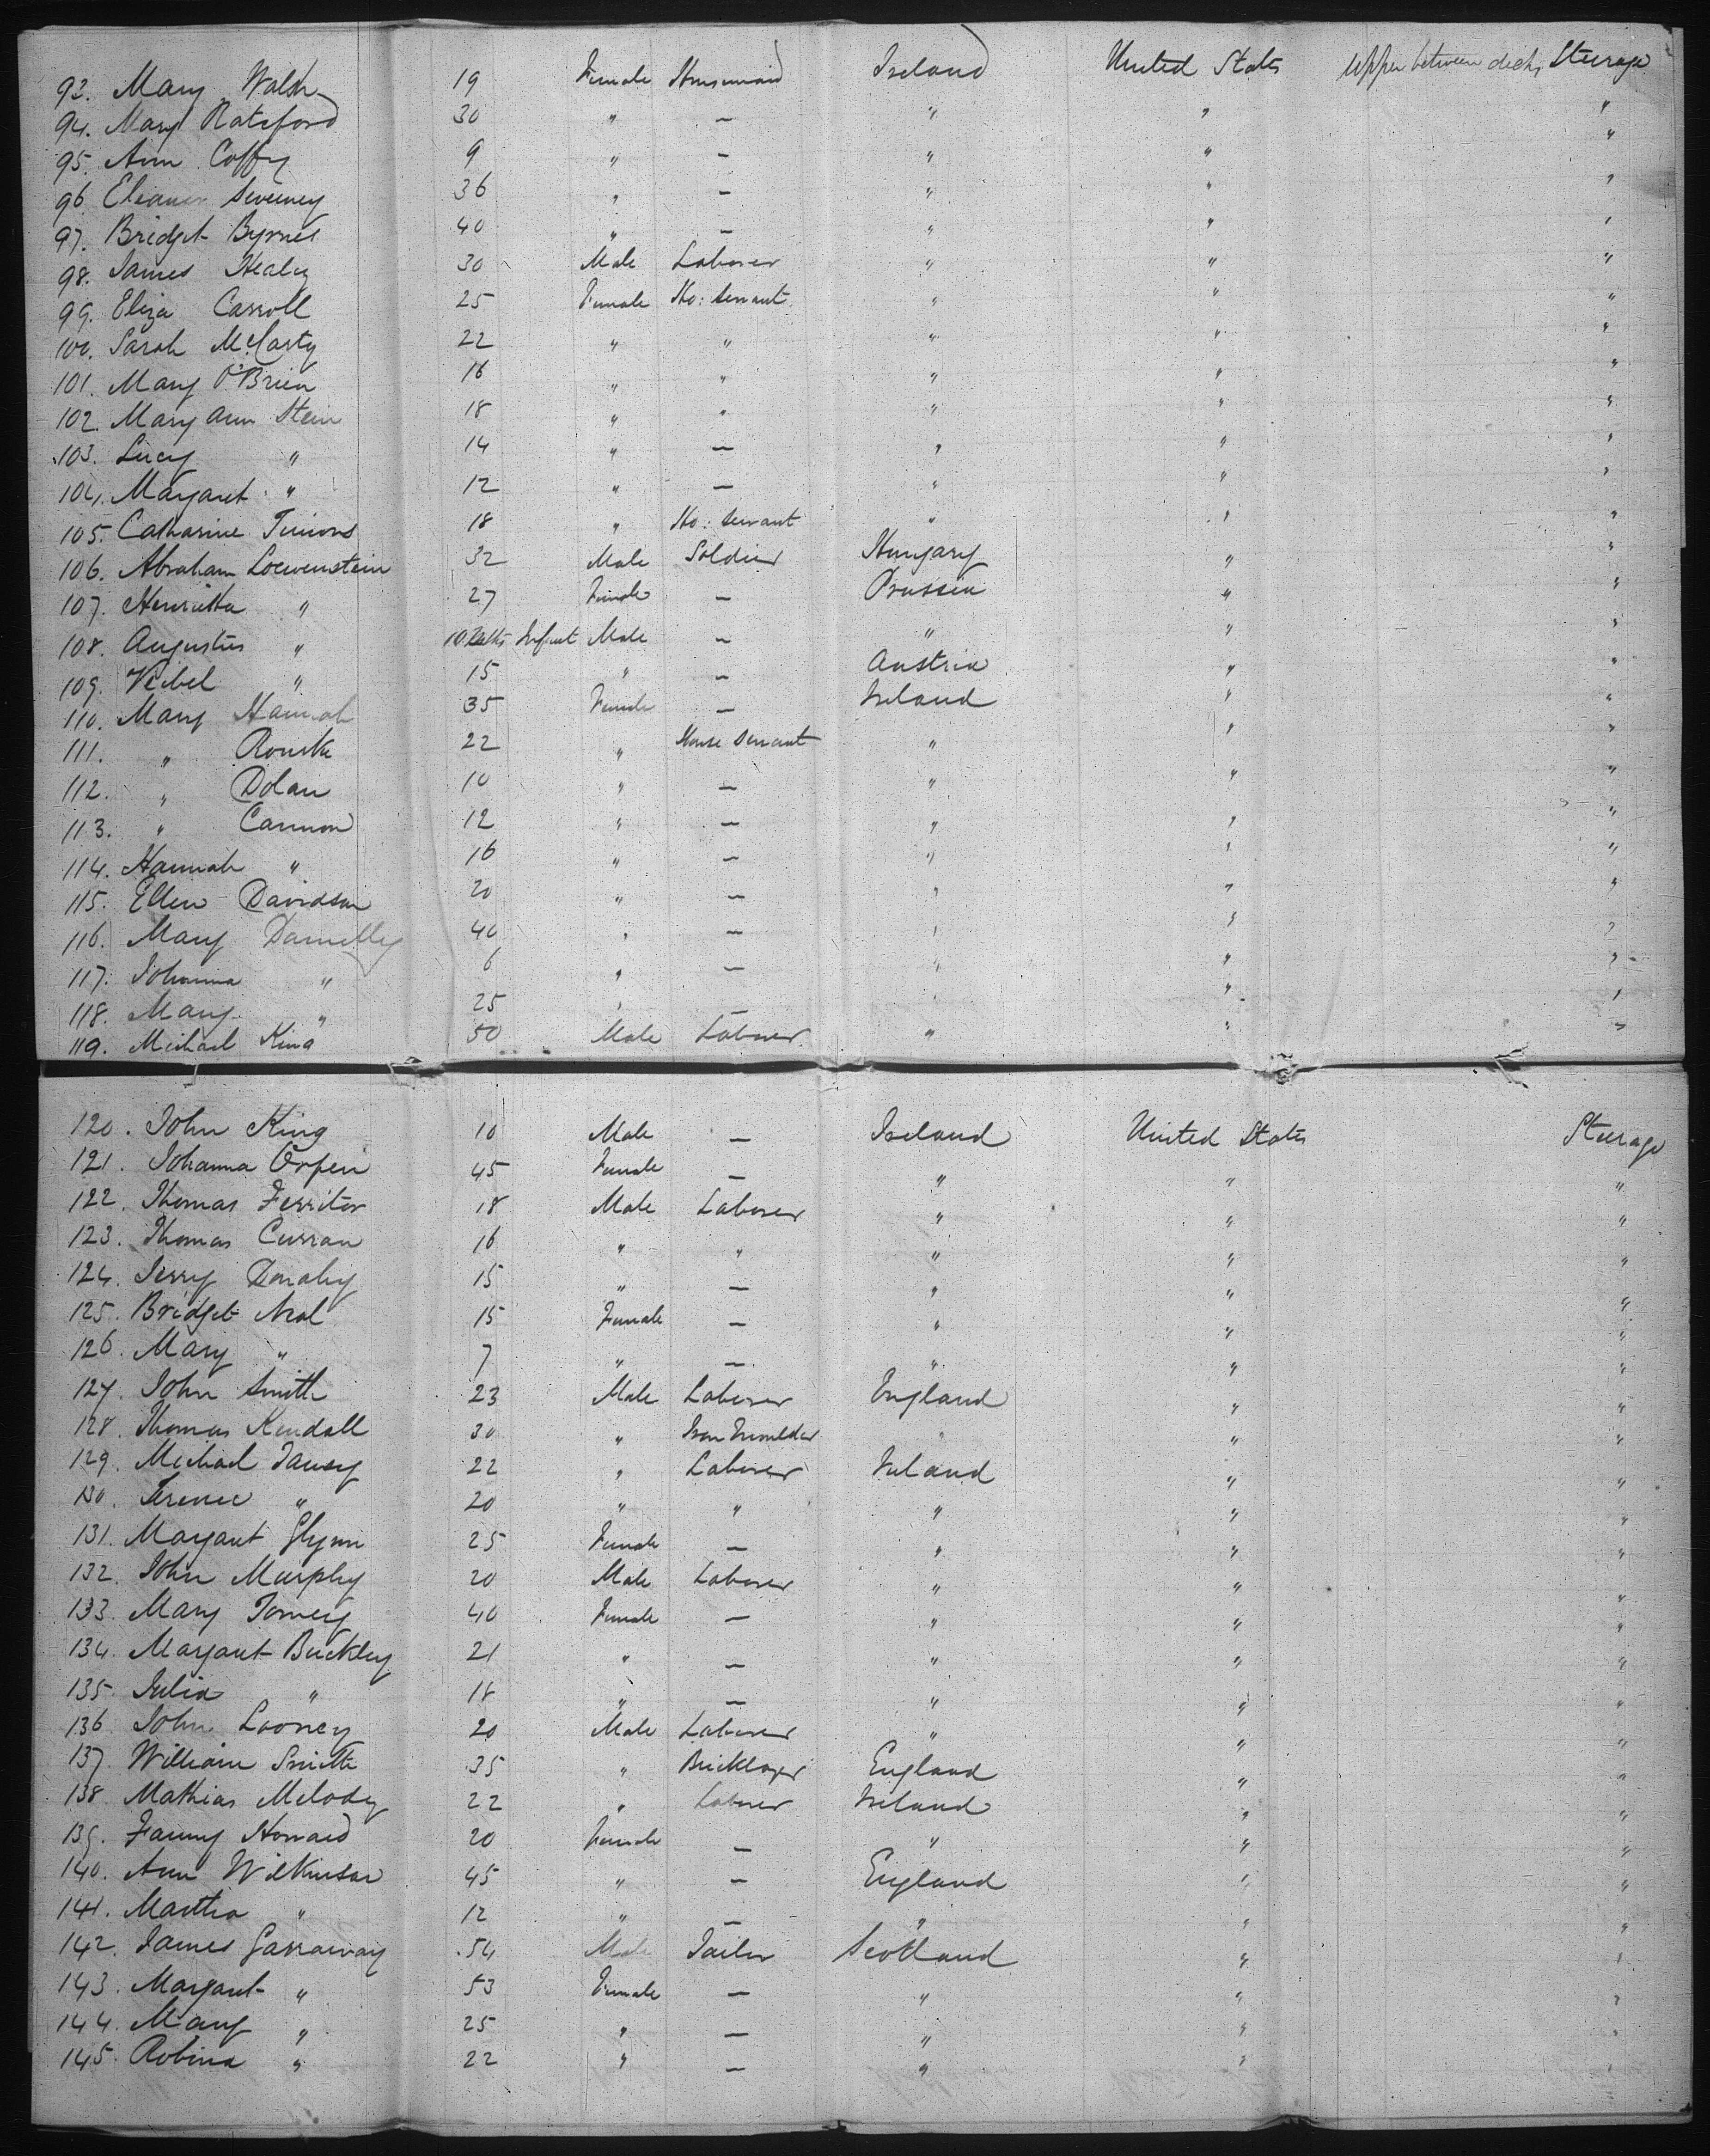 93. Mary Walsh 19 Female Housemaid Ireland United States Upper between decks Steerage
94. Mary Ratsford 30 " — " " "
95. Ann Coffy 9 " — " " "
96 Eleanor Sweeney 36 " — " " "
97. Bridget Byrnes 40 " — " " "
98. James Healy 30 Male Laborer " " "
99. Eliza Carroll 25 Female Ho: Servant " " "
100. Sarah McCarty 22 " " " " "
101. Mary O'Brien 16 " " " " "
102. Mary Ann Stein 18 " " " " "
103. Lucy " 14 " — " " "
104. Margaret " 12 " — " " "
105. Catharine Timons 18 " Ho: Servant " " "
106. Abraham Loewenstein 32 Male Soldier Hungary " "
107. Henrietta " 27 Female — Prussia " "
108. Augustus " 10 Infant Male — " " "
109. Veibel " 15 " — Austria " "
110. Mary Hannah 35 Female — Ireland " "
111. " Rourke 22 " House Servant " " "
112. " Dolan 10 " — " " "
113. " Cannon 12 " — " " "
114. Hannah " 16 " — " " "
115. Ellen Davidson 20 " — " " "
116. Mary 40 " — " " "
117. Johanna " 6 " — " " "
118. Mary " 25 " — " " "
119. Michael King 50 Male Laborer " " "
120. John King 10 Male — Ireland United States Steerage
121. Johanna Orpen 45 Female — " " "
122. Thomas Ferriter 18 Male Laborer " " "
123. Thomas Curran 16 " " " " "
124. Jerry Donahy 15 " — " " "
125. Bridget Neal 15 Female — " " "
126. Mary " 7 " — " " "
127. John Smith 23 Male Laborer England " "
128. Thomas Kendall 30 " Iron Moulder " " "
129. Michael Tansy 22 " Laborer Ireland " "
130. Terence " 20 " " " " "
131. Margaret Glynn 25 Female — " " "
132. John Murphy 20 Male Laborer " " "
133. Mary Tomey 40 Female — " " "
134. Margaret Buckley 21 " — " " "
135. Julia " 18 " — " " "
136. John Looney 20 Male Laborer " " "
137. William Smith 35 " Bricklayer England " "
138. Mathias Melody 22 " Laborer Ireland " "
139. Fanny Howard 20 Female — " " "
140. Ann Wilkinson 45 " — England " "
141. Martha " 12 " — " " "
142. James Garraway 54 Male Tailor Scotland " "
143. Margaret " 53 Female — " " "
144. Mary " 25 " — " " "
145. Robina " 22 " — "